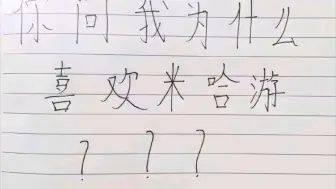 你问我为什么
喜欢米哈游
? ? ?